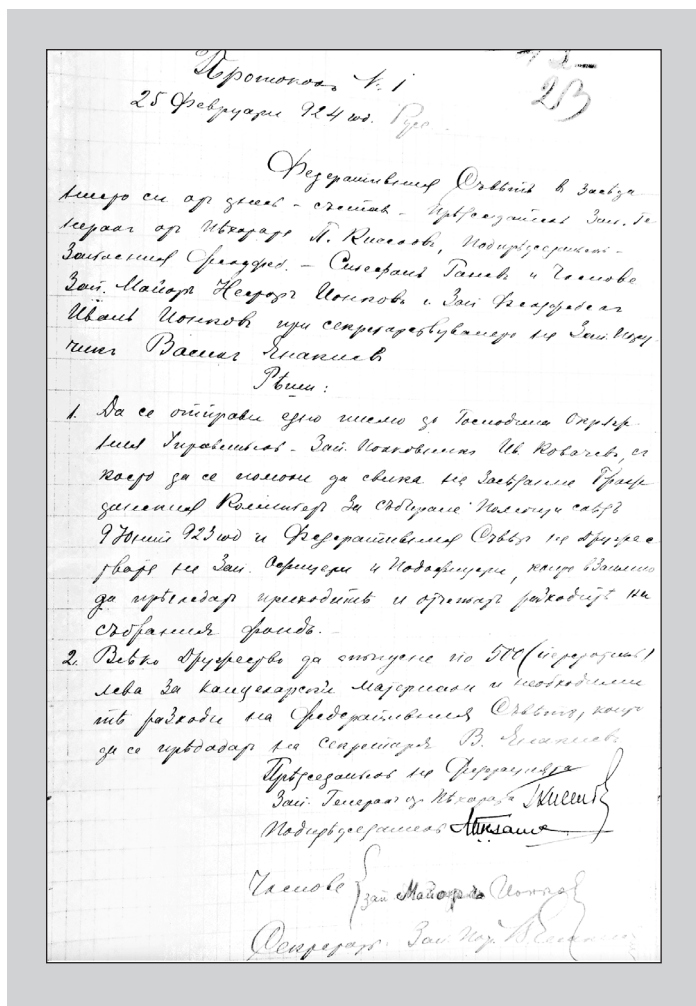 Протоколъ № 1
23
25 Февруари 924 год. Русе
Федеративния Съвѣтъ в заседа-
нието си от днесъ - съставъ - Прѣдседатель Зап. Ге-
нералъ отъ Пѣхотата П. Киселовъ, Подпрѣдседатель -
Запасния Фелдфеб. - Стефанъ Ганевъ и Членове
Зап. Майоръ Несторъ Йонковъ и Зап Фелдфебелъ
Иванъ Йонковъ при секретарствуването на Зап. Пору-
чикъ Василъ Енакиев
Рѣши:
1. Да се отправи едно писмо до Господина Окрѫж-
ния Управитель - Зап. Полковникъ Ив. Ковачевъ, съ
което да се помоли да свика на Заседание Граж-
данския Комитетъ За събиране Помощи слѣдъ
9 Юний 923 год и Федеративния Съвѣтъ на Друже-
ствата на Зап. Офицери и Подофицери, които взаимно
да прѣгледатъ приходитѣ и отчетатъ разходитѣ на
събрания фондъ. -
2. Всѣко Дружество да отпусне по 500 (петстотинъ)
лева За канцеларски материали и необходими
тѣ разходи на федеративния Съвѣтъ, които
да се прѣдадатъ на секретаря В. Енакиевъ
Прѣдседатель на Федерацията
Зап. Генералъ от Пѣхотата
Подпрѣдседатель
Членове зап Майоръ Йонков
Секретарь: Зап. Пор. В. Енакиевъ